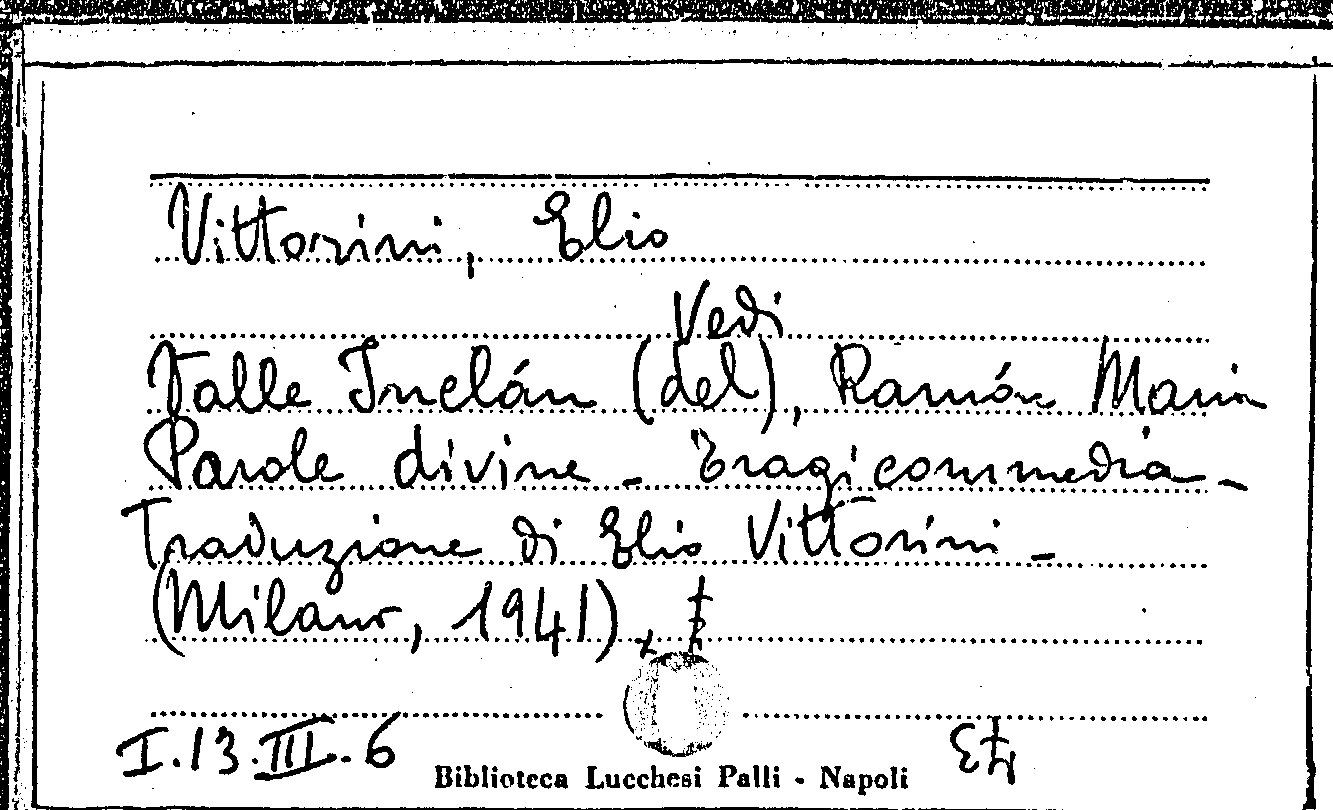 Vittorini, Elio
Vedi
Valle Inclán (del), Ramón Maria
Parole divine - Tragicommedia -
Traduzione di Elio Vittorini -
(Milano, 1941).
I.13.III.6
Biblioteca Lucchesi Palli - Napoli